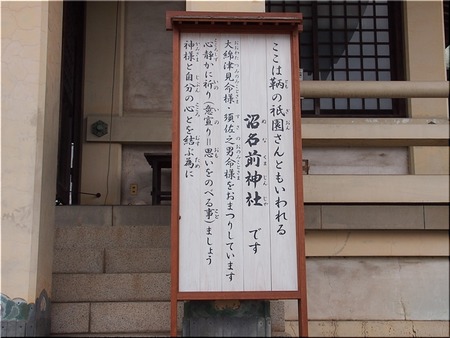 ここは鞆の祇園さんともいわれる
沼名前神社 です
大綿津見命様・須佐之男命様をおまつりしています
心静かに祈り(意宣り=思いをのべる事)ましょう
神様と自分の心とを結ぶ為に